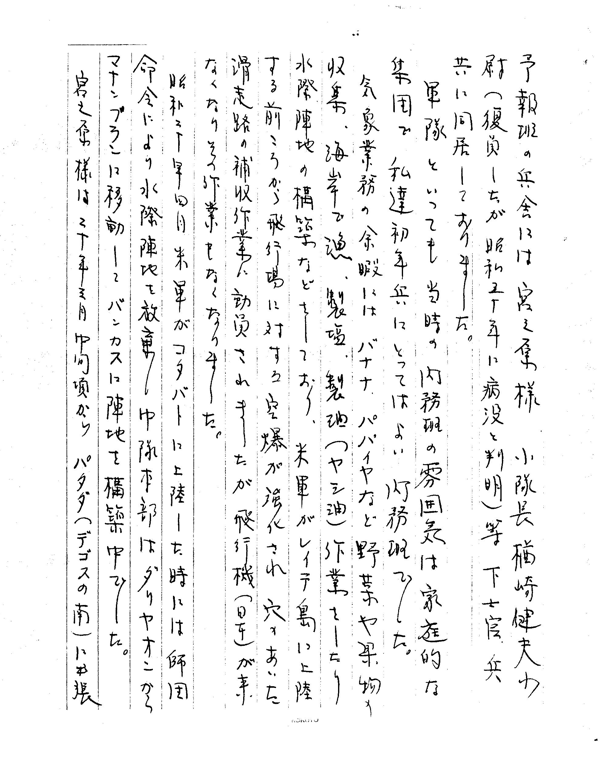 予報班の兵舎には宮之集様 小隊長 楢崎健夫少
尉（復員したが昭和五十年に病没と判明）等 下士官、兵
共に同居しておりました。
軍隊といっても当時の内務班の雰囲気は家庭的な
集団で 私達初年兵にとってはよい内務班でした。
気象業務の余暇にはバナナ、パパイヤなど野菜や果物の
収集、海岸で漁、製塩、製油（ヤシ油）作業をしたり
水際陣地の構築などをしており、米軍がレイテ島に上陸
する前ころから飛行場に対する空爆が強化され 穴のあいた
滑走路の補収作業に動員されましたが飛行機（日本）が来
なくなりその作業もなくなりました。
昭和二十年四月米軍がコタバトに上陸した時には師団
命令により水際陣地を放棄し中隊本部はダリヤオンから
マナンブランに移動してバンカスに陣地を構築中でした。
宮之集様は二十年三月中旬頃から パダダ（デゴスの南）に出張